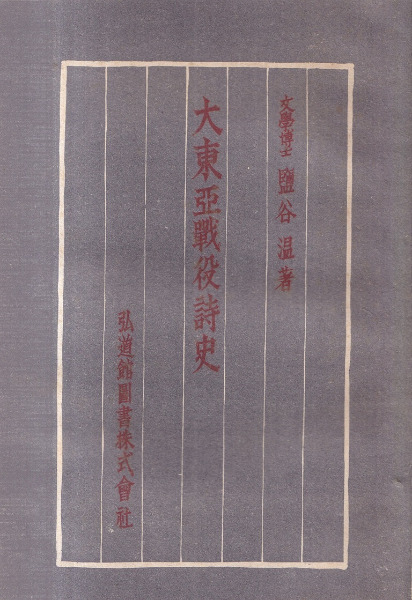 文學博士 鹽谷温著
大東亞戰役詩史
弘道館圖書株式會社